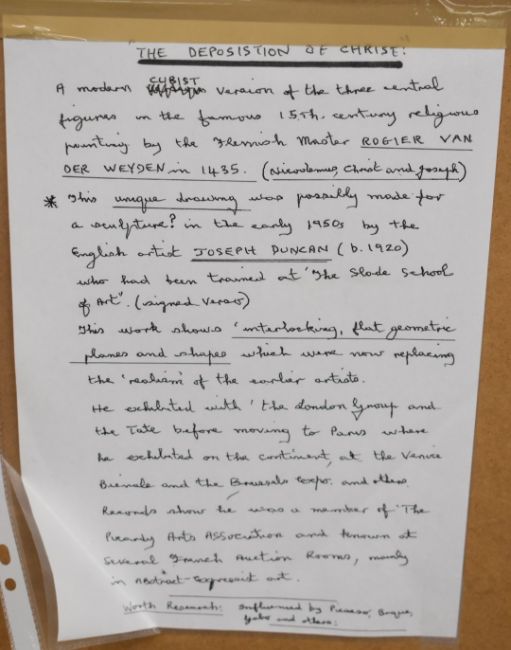 "THE DEPOSISTION OF CHRIST:
A modern CUBIST version of the three central
figures in the famous 15th. century religious
painting by the Flemish Master ROGIER VAN
DER WEYDEN in 1435. (Nicodemus, Christ and Joseph)
* This unique drawing was possibly made for
a sculpture? in the early 1950s by the
English artist JOSEPH DUNCAN (b. 1920)
who had been trained at 'The Slade School
of Art". (signed Verso)
This work shows 'interlocking, flat geometric
planes and shapes which were now replacing
the 'realism' of the earlier artists.
He exhibited with 'the London Group and
the Tate before moving to Paris where
he exhibited on the continent, at the Venice
Bienale and the Brussels Expo. and others.
Records show he was a member of 'The
Picardy Arts Association and known at
Several French Auction Rooms, mainly
in Abstract-Expressist art.
Worth Research: Influenced by Picasso, Braque,
Gabo and others: